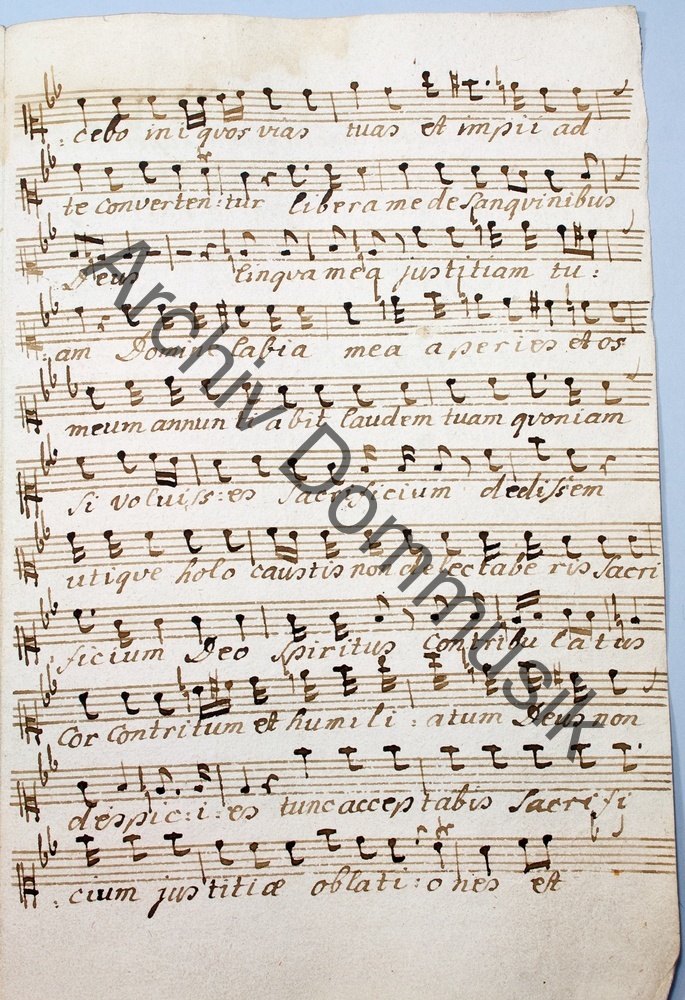 : cebo ini quos vias tuas et impii ad
te converten: tur libera me de sanqvinibus
Deus linqva mea justitiam tu:
am Domin labia mea aperies et os
meum annun ti abit laudem tuam qvoniam
si voluiss: es sacrificium dedissem
utiqve holo caustis non delectabe ris sacri
ficium Deo spiritus contribu latus
cor contritum et humili: atum Deus non
despic: i: es tunc acceptabis sacrifi
: cium justitiæ oblati: o nes et
Archiv Dommusik